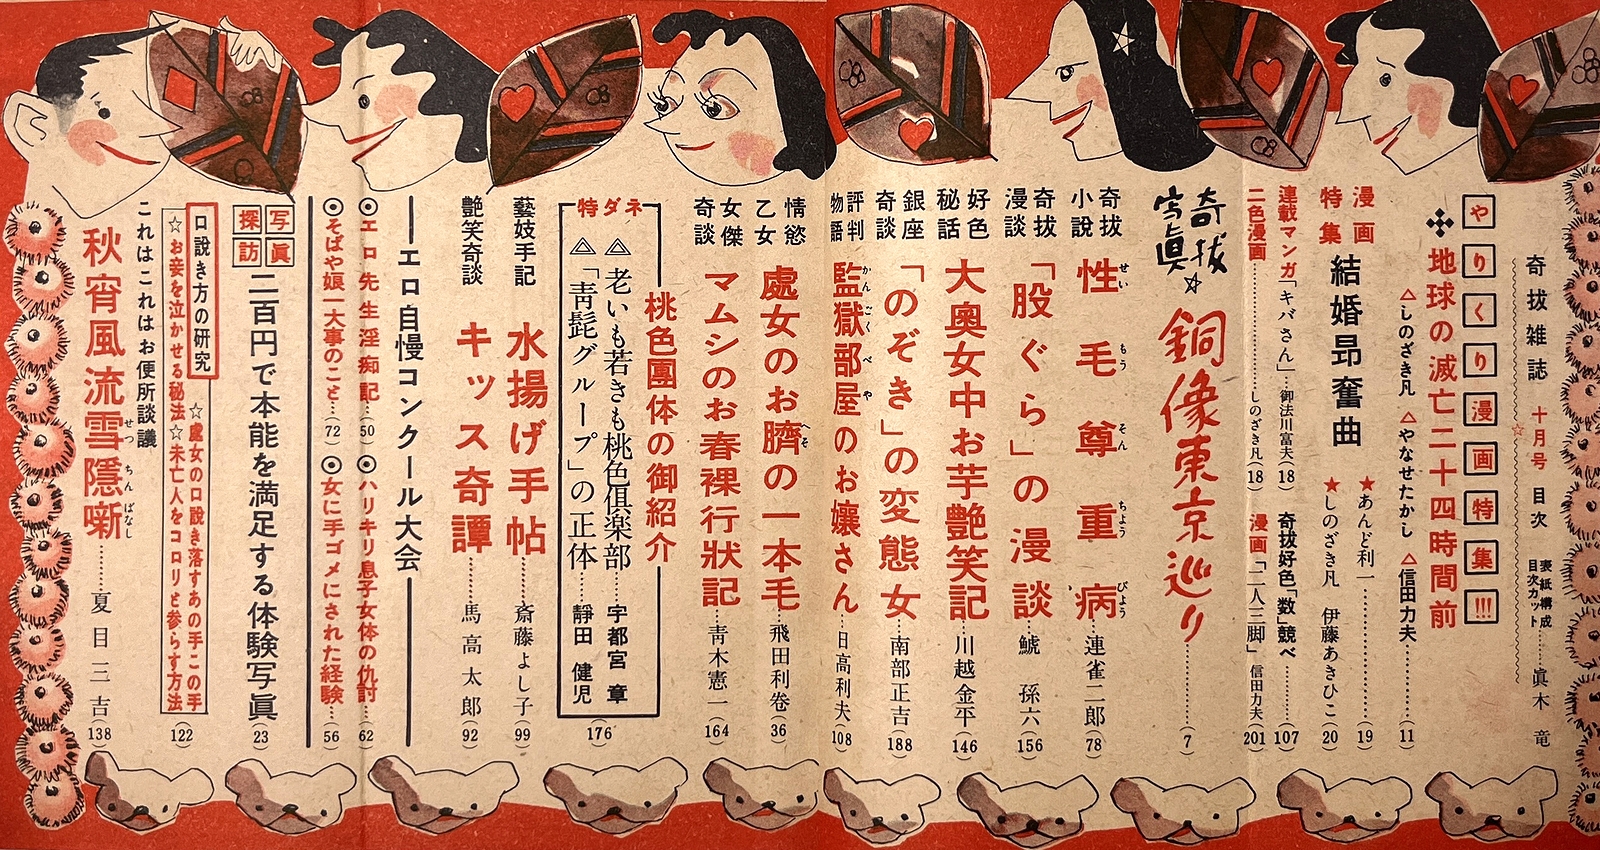 奇抜雑誌 十月号 目次
表紙構成
目次カット……眞木 竜
やりくり漫画特集!!!
地球の滅亡二十四時間前
△しのざき凡 △やなせたかし △信田力夫……(11)
漫画特集
結婚昻奮曲
★あんど利一……(19)
★しのざき凡 伊藤あきひこ(20)
連載マンガ「キバさん」…御法川富夫(18) 奇抜好色「数」競べ(107)
二色漫画……しのざき凡(18) 漫画「二人三脚」信田力夫(201)
奇抜写眞☆銅像東京巡り……(7)
奇抜小說 性毛尊重病……連雀二郎(78)
せい もう そん ちょう びょう
奇抜漫談 「股ぐら」の漫談……鯱 孫六(156)
好色秘話 大奥女中お芋艶笑記……川越金平(146)
銀座奇談 「のぞき」の変態女……南部正吉(188)
評判物語 監獄部屋のお孃さん……日高利夫(108)
かん ごく べ や
情慾乙女 處女のお臍の一本毛……飛田利巻(36)
へそ
女傑奇談 マムシのお春裸行狀記……靑木憲一(164)
特ダネ
桃色團体の御紹介
△老いも若きも桃色俱楽部……宇都宮 章
△「靑髭グループ」の正体……靜田 健児
(176)
藝妓手記 水揚げ手帖……斎藤よし子(99)
艶笑奇談 キッス奇譚……馬高太郎(92)
エロ自慢コンクール大会
◎エロ先生淫痴記…(50) ◎ハリキリ息子女体の仇討…(62)
◎そばや娘一大事のこと…(72) ◎女に手ゴメにされた経験…(56)
写眞探訪 二百円で本能を満足する体験写眞(23)
口說き方の研究
☆處女の口說き落すあの手この手
☆お妾を泣かせる秘法☆未亡人をコロリと参らす方法
(122)
これはこれはお便所談議
秋宵風流雪隱噺……夏目三吉(138)
せつ ちん ばなし